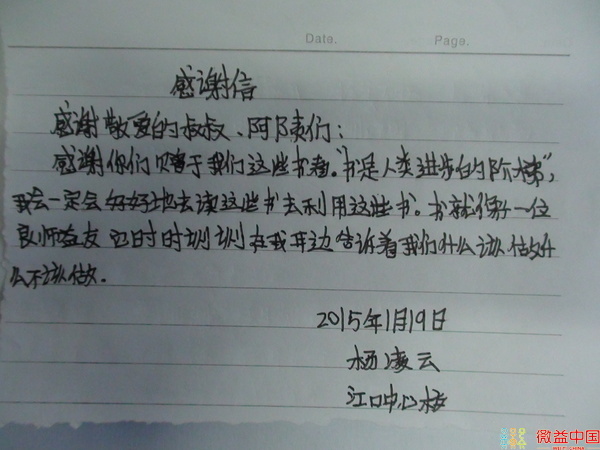 Date. Page.
感谢信
感谢敬爱的叔叔、阿姨们:
感谢你们赠于我们这些书籍。“书是人类进步的阶梯”,
我会一定会好好地去读这些书去利用这些书。书就像一位
良师益友 时时刻刻在我耳边告诉着我们什么该做什
么不该做.
2015年1月19日
杨凌云
江口中心校
微益中国